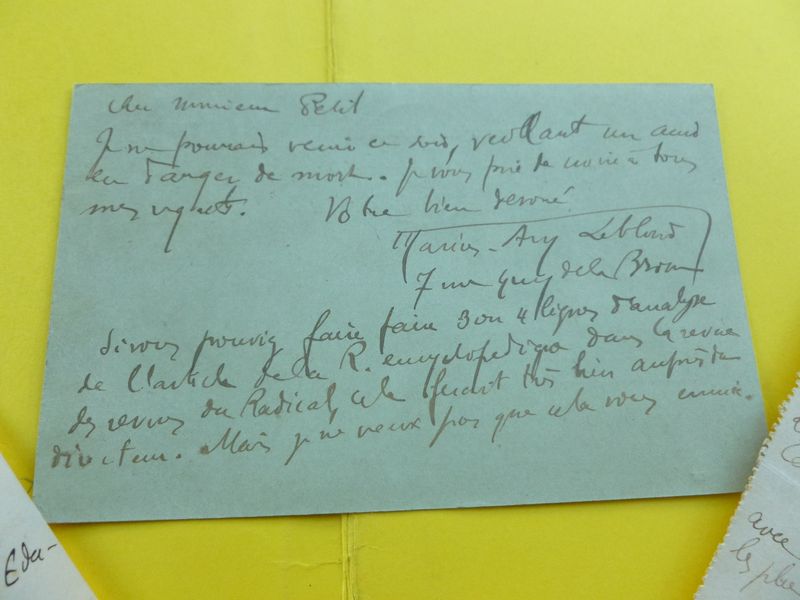 Cher monsieur Petit
Je ne pourrais venir ce soir, veillant un ami
en danger de mort. Je vous prie de croire à tous
mes regrets. Votre bien dévoué
Marius-Ary Leblond
7 rue Guy de la Brosse
Si vous pouviez faire faire 3 ou 4 lignes d'analyse
de l'article de la R. encyclopédique dans la revue
des revues du Radical, cela ferait très bien auprès du
directeur. Mais je ne veux pas que cela vous ennuie.
Edu-
avec
les plu